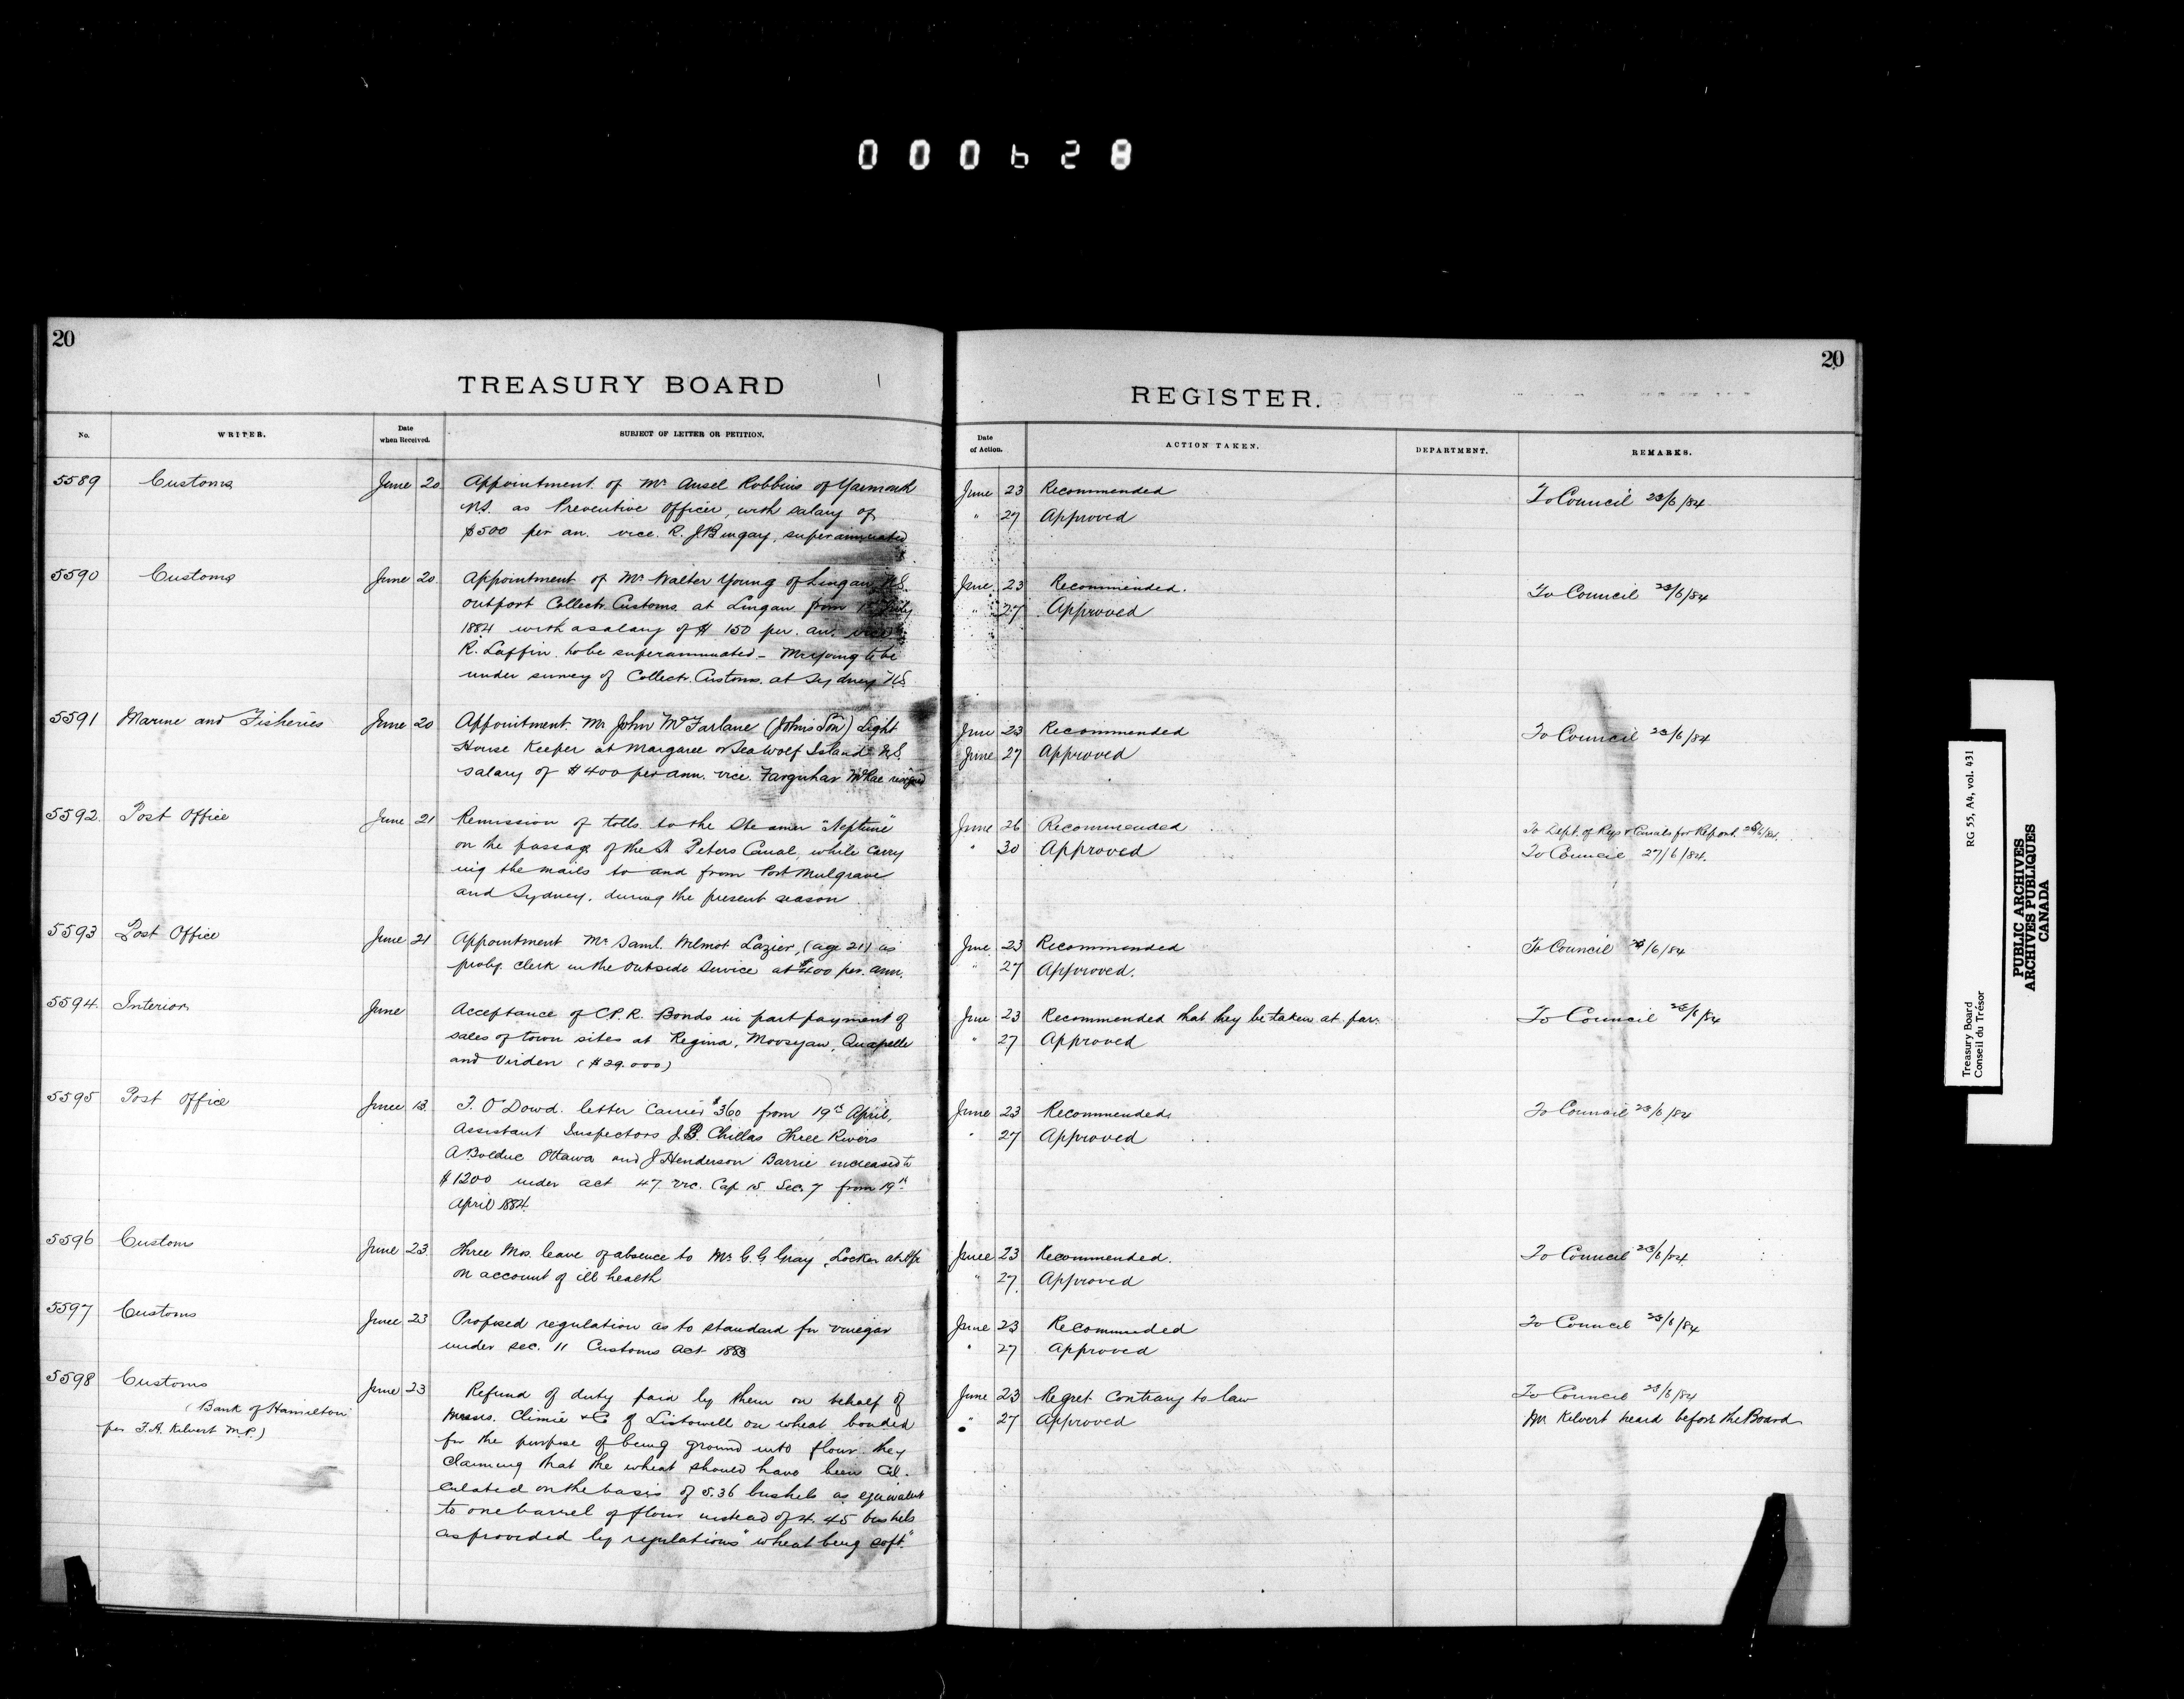 000628
20
20
TREASURY BOARD
REGISTER.
No.
WRITER.
Date
when Received.
SUBJECT OF LETTER OR PETITION.
Date
of Action.
ACTION TAKEN.
DEPARTMENT.
REMARKS.
5589 Customs June 20 Appointment of Mr Ansel Robbins of Yarmouth June 23 Recommended To Council 23/6/84
N.S. as Preventive Officer, with salary of " 27 Approved
$500 per an. vice R. J. Bingay, superannuated
5590 Customs June 20 Appointment of Mr Walter Young of Lingan, N.S. June 23 Recommended. To Council 23/6/84
outport Collectr. Customs at Lingan from 1st July " 27 Approved
1884 with a salary of $150 per. an. vice
R. Laffin to be superannuated - Mr Young to be
under survey of Collectr. Customs. at Sydney N.S.
5591 Marine and Fisheries June 20 Appointment Mr John McFarlane (John's Son) Light June 23 Recommended To Council 23/6/84
House Keeper at Margaree or Seawolf Island N.S. June 27 Approved
Salary of $400 per ann. vice. Farquhar McRae resigned
5592 Post Office June 21 Remission of tolls to the Steamer "Neptune" June 26 Recommended To Dept. of Rys & Canals for Report 25/6/84.
on the passage of the St Peters Canal, while carry " 30 Approved To Council 27/6/84.
ing the mails to and from Port Mulgrave
and Sydney, during the present season
5593 Post Office June 21 Appointment Mr Saml. Wilmot Lazier, (age 21) as June 23 Recommended To Council 23/6/84
proby. clerk in the Outside Service at $400 per. ann. " 27 Approved.
5594 Interior June Acceptance of C.P.R. Bonds in part payment of June 23 Recommended that they be taken at par. To Council 23/6/84
sales of town sites at Regina, Moosejaw, Quapelle " 27 Approved
and Virden ($29.000)
5595 Post Office June 13 T. O'Dowd. letter Carrier $360 from 19th April, June 23 Recommended To Council 23/6/84
Assistant Inspectors J. B. Chillas Three Rivers " 27 Approved
A Bolduc Ottawa and J Henderson Barrie increased to
$1200 under act 47 Vic. Cap 15 Sec. 7 from 19th
April 1884
5596 Customs June 23 Three Mos. leave of absence to Mr G. G Gray, Locker at Hfx June 23 Recommended. To Council 23/6/84
on account of ill health " 27 Approved
5597 Customs June 23 Proposed regulation as to standard for vinegar June 23 Recommended To Council 23/6/84
under sec. 11 Customs Act 1883 " 27 Approved
5598 Customs June 23 Refund of duty paid by them on behalf of June 23 Regret Contrary to law To Council 23/6/84
(Bank of Hamilton Messrs. Climie & Co of Listowell on wheat bonded " 27 Approved Mr Kilvert heard before the Board
per F. A. Kilvert M.P.) for the purpose of being ground into flour they
claiming that the wheat should have been cal-
culated on the basis of 5.36 bushels as equivalent
to one barrel of flour instead of 4.45 bushels
as provided by regulations "wheat being soft."
Treasury Board
Conseil du Trésor
RG 55, A4, vol. 431
PUBLIC ARCHIVES
ARCHIVES PUBLIQUES
CANADA